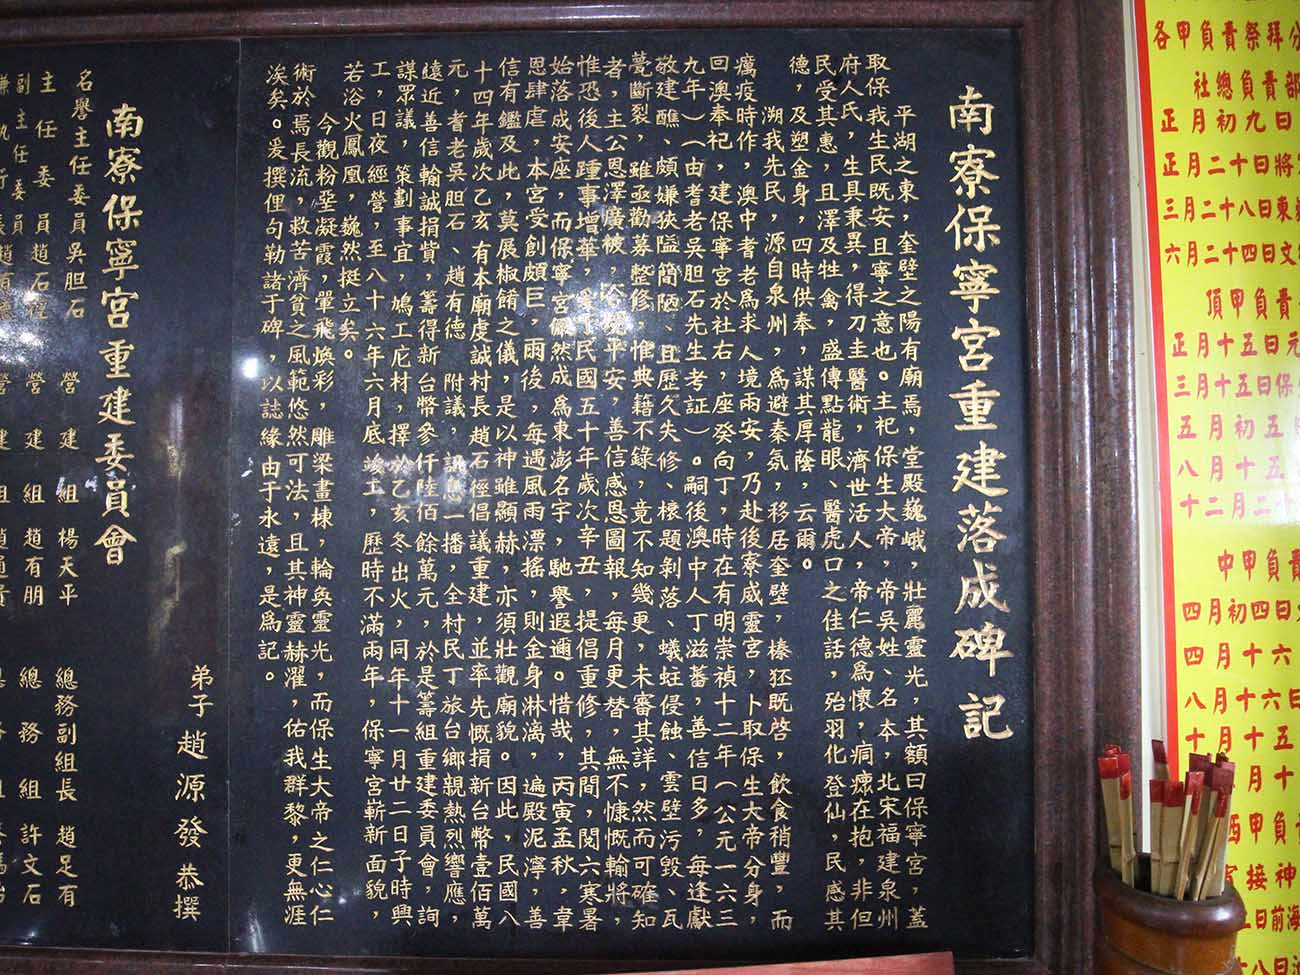 南寮保寧宮重建落成碑記
平湖之東，奎壁之陽有廟焉，堂殿巍峨，壯麗靈光，其額曰保寧宮，蓋
取保我生民既安且寧之意也。主祀保生大帝，帝吳姓、名本，北宋福建泉州
府人氏，生具秉異，得刀圭醫術，濟世活人，帝仁德為懷，痌瘝在抱，非但
民受其惠，且澤及牲禽，盛傳點龍眼、醫虎口之佳話，殆羽化登仙，民感其
德，及塑金身，四時供奉，謀其厚蔭，云爾。
溯我先民，源自泉州，為避秦氛，移居奎壁，榛狉既啓，飲食稍豐，而
癘疫時作，澳中耆老為求人境兩安，乃赴後寮威靈宮，卜取保生大帝分身，
回澳奉祀，建保寧宮於社右，座癸向丁，時在有明崇禎十二年（公元一六三
九年）（由耆老吳胆石先生考証）。嗣後澳中人丁滋蕃，善信日多，每逢獻
敬建醮、頗嫌狹隘簡陋、且歷久失修、榱題剝落、蟻蛀侵蝕、雲壁污毀、瓦
甍斷裂，雖亟勸募整修，惟典籍不錄，竟不知幾更，未審其詳，然而可確知
者，主公恩澤廣被，合境平安，善信感恩圖報，每月更替，無不慷慨輸將，
惟恐後人踵事增華，民國五十年歲次辛丑，提倡重修，其間，閱六寒暑
始落成安座，而保寧宮儼然成為東澎名宇，馳譽遐邇。惜哉，丙寅孟秋，韋
恩肆虐，本宮受創頗巨，雨後，每遇風雨漂搖，則金身淋漓，遍殿泥濘，善
信有鑑及此，莫展椒餚之儀，是以神雖顯赫，亦須壯觀廟貌。因此，民國八
十四年歲次乙亥有本廟虔誠村長趙石徑倡議重建，並率先慨捐新台幣壹佰萬
元，耆老吳胆石、趙有德 附議，訊息一播，全村民丁旅台鄉親熱烈響應，
遠近善信輸誠捐貲，籌得新台幣參仟陸佰餘萬元，於是籌組重建委員會，詢
謀眾議，策劃事宜，鳩工庀材，擇於乙亥冬出火，同年十一月廿二日子時興
工，日夜經營，至八十六年六月底竣工，歷時不滿兩年，保寧宮嶄新面貌，
若浴火鳳凰，巍然挺立矣。
今觀粉堊凝霞，翬飛煥彩，雕梁畫棟，輪奐靈光，而保生大帝之仁心仁
術於焉長流，救苦濟貧之風範悠然可法，且其神靈赫濯，佑我群黎，更無涯
涘矣。爰撰俚句勒諸于碑，以誌緣由于永遠，是為記。
弟子趙源發恭撰
南寮保寧宮重建委員會
名譽主任委員吳胆石 營建組楊天平 總務副組長趙足有
主任委員趙石徑 營建組趙有朋 總務組許文石
副主任委員 營建組趙
各甲負責祭拜
社總負責部
正月初九日
正月二十日將
三月二十八日東
六月二十四日文
頂甲負責
正月十五日元
三月十五日保
五月初五
八月十五
十二月二十
中甲負責
四月初四日
四月十六
八月十六日
十月十五
月十
西甲負
接神
日前海
十八日